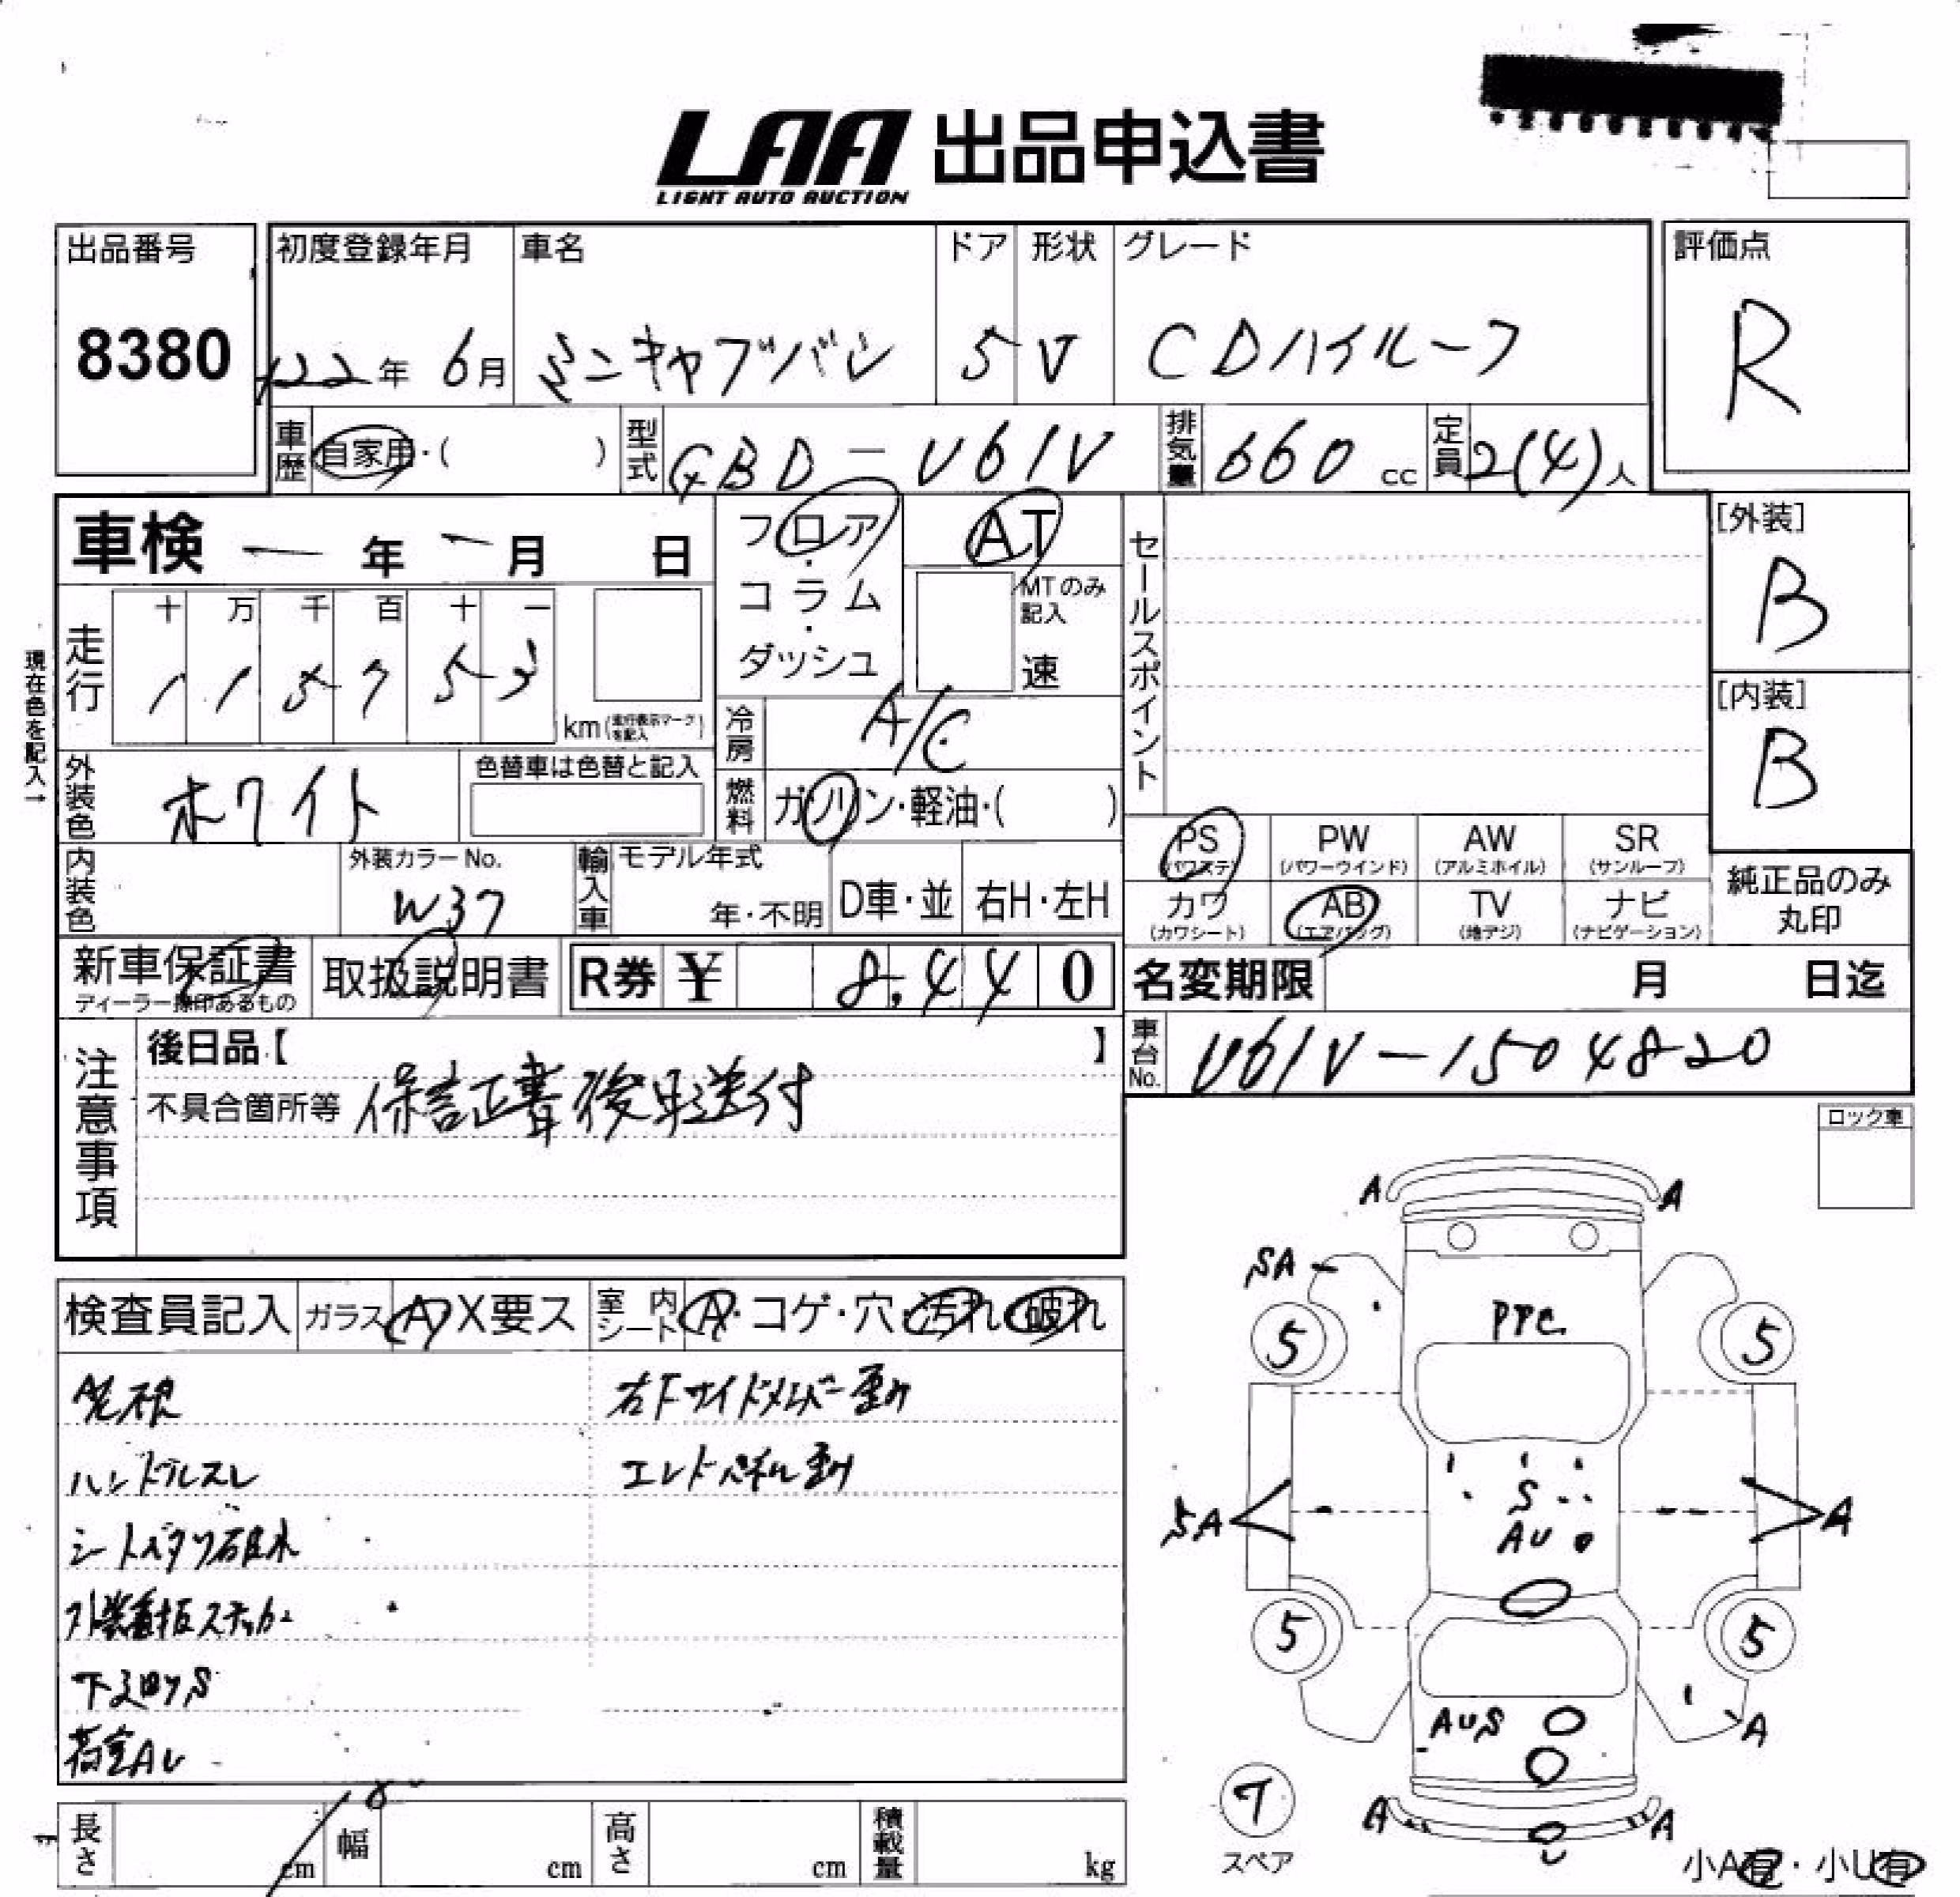 LAA 出品申込書
LIGHT AUTO AUCTION
出品番号
8380
初度登録年月
22年 6月
車名
ミニキャブバン
ドア
5
形状
V
グレード
CDハイルーフ
評価点
R
車歴 自家用・( )
型式 GBD-U61V
排気量 660 cc
定員 2(4)人
車検 ー年 ー月 日
フロア・コラム・ダッシュ
AT
MTのみ記入
速
セールスポイント
[外装]
B
[内装]
B
現在色を記入→
走行
十 万 千 百 十 一
1 1 5 7 5 3
km(走行表示マークを記入)
冷房 A/C
燃料 ガソリン・軽油・( )
外装色 ホワイト
色替車は色替と記入
内装色
外装カラーNo.
W37
輸入車
モデル年式
年・不明
D車・並
右H・左H
PS (パワステ)
PW (パワーウインド)
AW (アルミホイル)
SR (サンルーフ)
カワ (カワシート)
AB (エアバッグ)
TV (地デジ)
ナビ (ナビゲーション)
純正品のみ丸印
新車保証書
ディーラー捺印あるもの
取扱説明書
R券 ¥ 8,440
名変期限 月 日迄
車台No. U61V-1504820
注意事項
後日品【 】
不具合箇所等 保証書後日送付
ロック車
検査員記入
ガラス A X要ス
室内シート A・コゲ・穴・汚れ・破れ
右Fサイドメンバー歪み
ハンドルスレ
エンドパネル歪み
シートズタツ破れ
外装看板ステッカー
下廻りS
荷室AU
A A
SA
PPC
5 5
S
SA A
AU
5 5
AUS
A
A A
U
7
スペア
小A有・小U有
長さ cm
幅 cm
高さ cm
積載量 kg